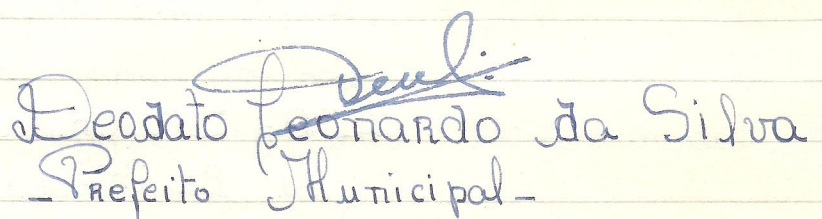 Deodato Leonardo da Silva
- Prefeito Municipal -